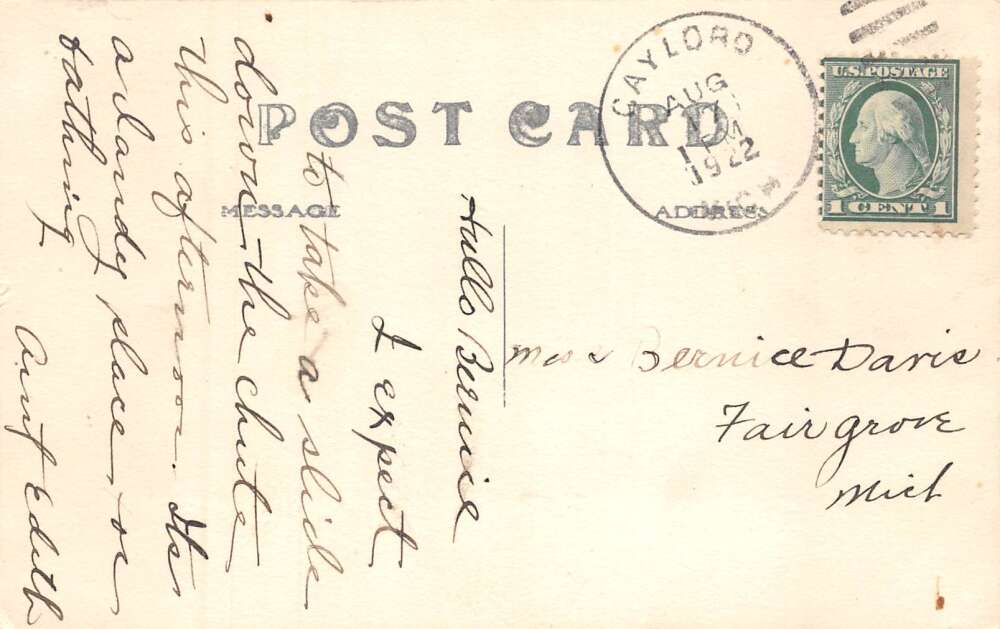 POST CARD
MESSAGE
ADDRESS
GAYLORD
AUG
1922
MICH
U.S. POSTAGE
1 CENT 1
Hullo Bernice
I expect
to take a slide
down the chute
this afternoon. Its
a dandy place for
bathing
Aunt Edith
Miss Bernice Davis
Fairgrove
Mich